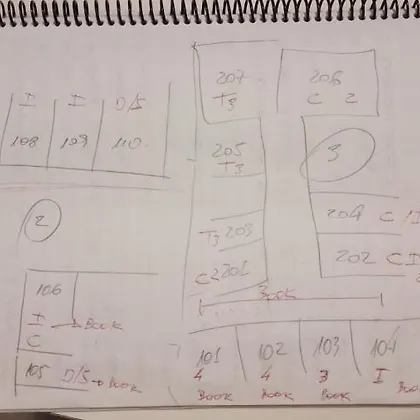 207
T3
206
C 2
I I D/S
108 109 110
205
T3
3
2
T3 203
204 C/I
C2 201
202 CI
106
Book
I → Book
C
101 102 103 104
105 D/S → Book
4 4 3 I
Book Book Book Boo